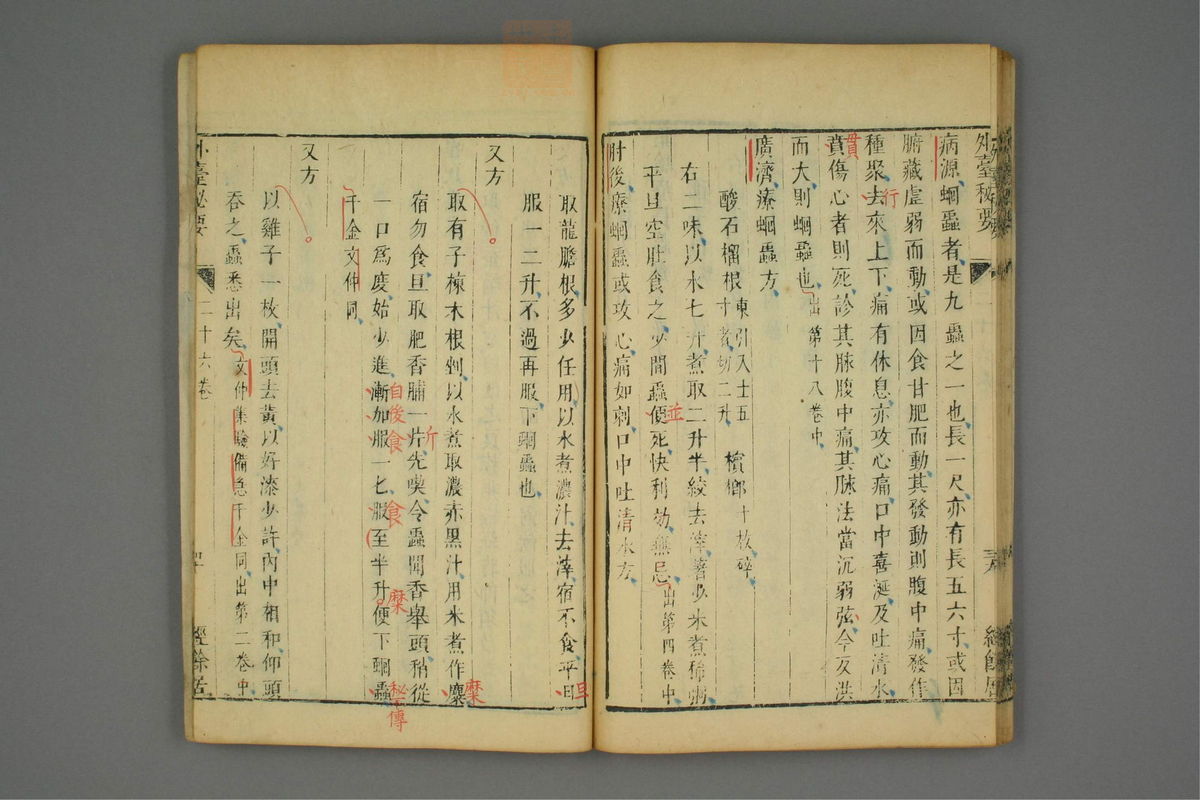 外臺秘要
三九
經餘居
病源蚘蟲者是九蟲之一也長一尺亦有長五六寸或因
腑藏虛弱而動或因食甘肥而動其發動則腹中痛發作
種聚去來上下痛有休息亦攻心痛口中喜涎及吐清水
行
貫傷心者則死診其脉腹中痛其脉法當沉弱弦今反洪
貫
而大則蚘蟲也出第十八卷中
廣濟療蚘蟲方
酸石榴根東引入土五寸者切二升
檳榔十枚碎
右二味以水七升煮取二升半絞去滓著少米煮稀粥
平旦空肚食之少間蟲便死快利効無忌出第四卷中
並
肘後療蚘蟲或攻心痛如刺口中吐清水方
取龍膽根多少任用以水煮濃汁去滓宿不食平旦
旦
服一二升不過再服下蚘蟲也
又方
取有子楝木根剉以水煮取濃赤黑汁用米煮作糜
糜
宿勿食旦取肥香脯一片先喫令蟲聞香舉頭稍從
斤
一口爲度始少進漸加服一匕服至半升便下蚘蟲
自後食
食
糜
秘傳
千金文仲同
又方
以雞子一枚開頭去黃以好漆少許內中相和仰頭
吞之蟲悉出矣文仲集驗備急千金同出第二卷中
外臺秘要
二十六卷
四十
經餘居